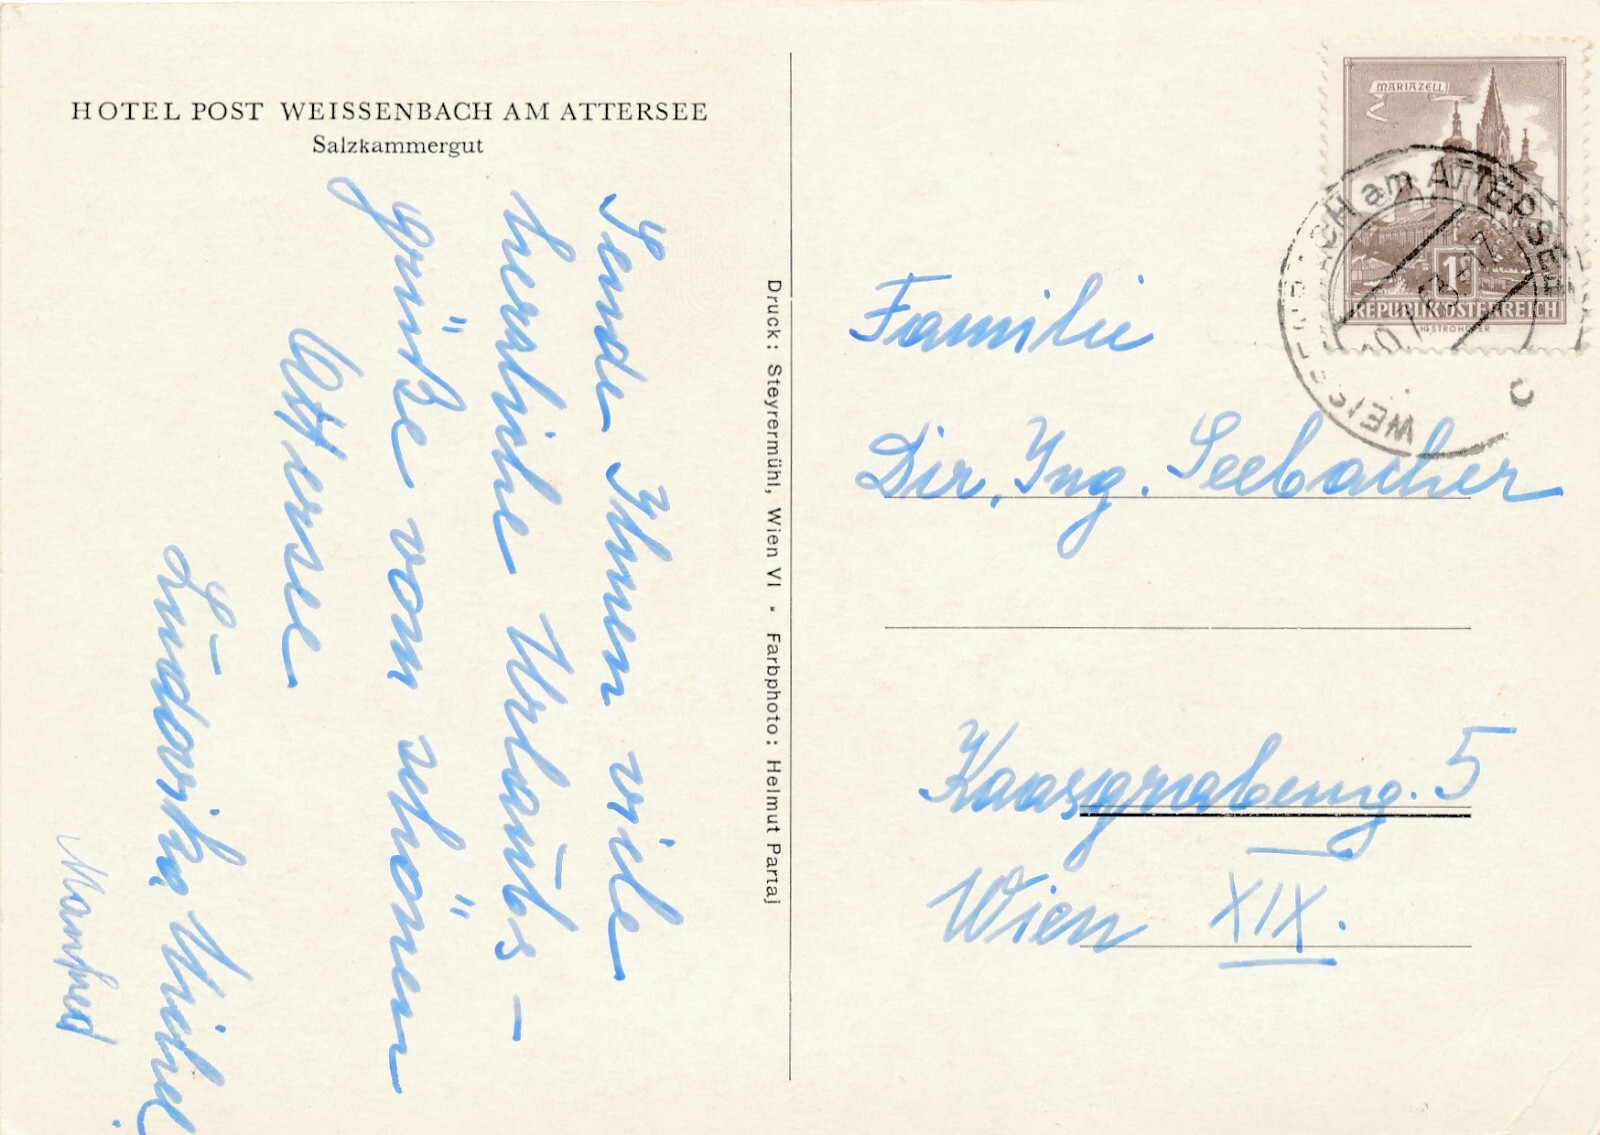 HOTEL POST WEISSENBACH AM ATTERSEE
Salzkammergut
Sende Ihnen viele
herzliche Urlaubs-
grüße vom schönen
Attersee
Manfred
Druck: Steyrermühl, Wien VI • Farbphoto: Helmut Partaj
MARIAZELL
1S
REPUBLIK ÖSTERREICH
H. STROHOFER
WEISSENBACH am ATTERSEE
Familie
Dir. Ing. Seebacher
Kaasgrabeng. 5
Wien XIX.